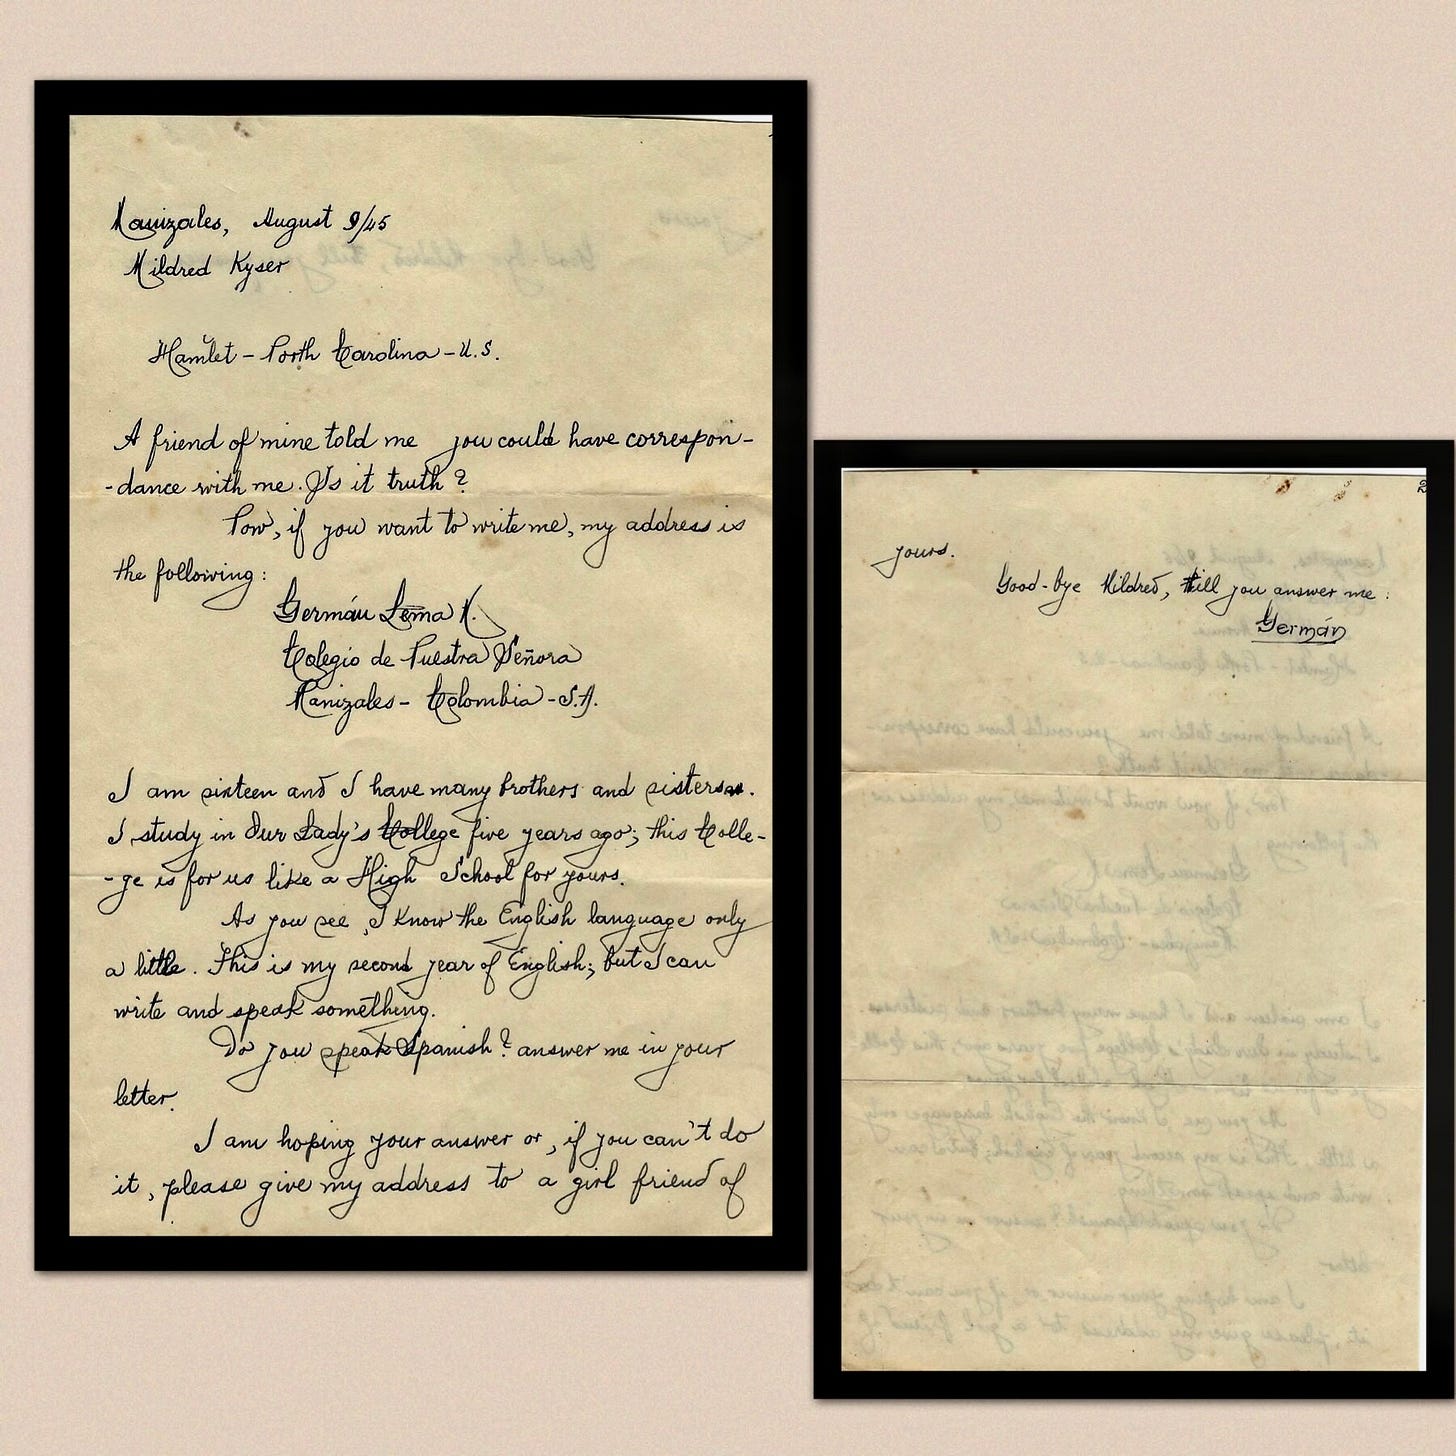 Manizales, August 9/45
Mildred Kyser
Hamlet - North Carolina - U.S.
A friend of mine told me you could have correspon-
-dance with me. Is it truth?
Now, if you want to write me, my address is
the following:
Germán Lema N.
Colegio de Nuestra Señora
Manizales - Colombia - S.A.
I am sixteen and I have many brothers and sisters.
I study in Our Lady's College five years ago; this Colle-
-ge is for us like a High School for yours.
As you see, I know the English language only
a little. This is my second year of English; but I can
write and speak something.
Do you speak Spanish? answer me in your
letter.
I am hoping your answer or, if you can't do
it, please give my address to a girl friend of
2
yours.
Good-bye Mildred, till you answer me:
Germán